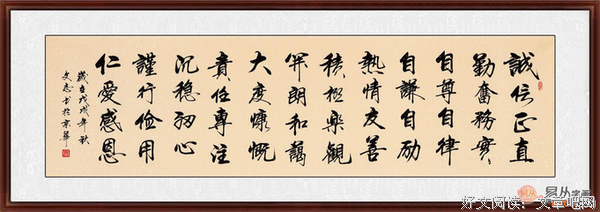 誠信正直
勤奮務實
自尊自律
自謙自励
熱情友善
積極樂觀
開朗和藹
大度慷慨
責任專注
沉稳心
謹行俭用
仁愛感恩
歲在戊戌年秋
文志书於京華
易从字画
好文阅读：文章吧网